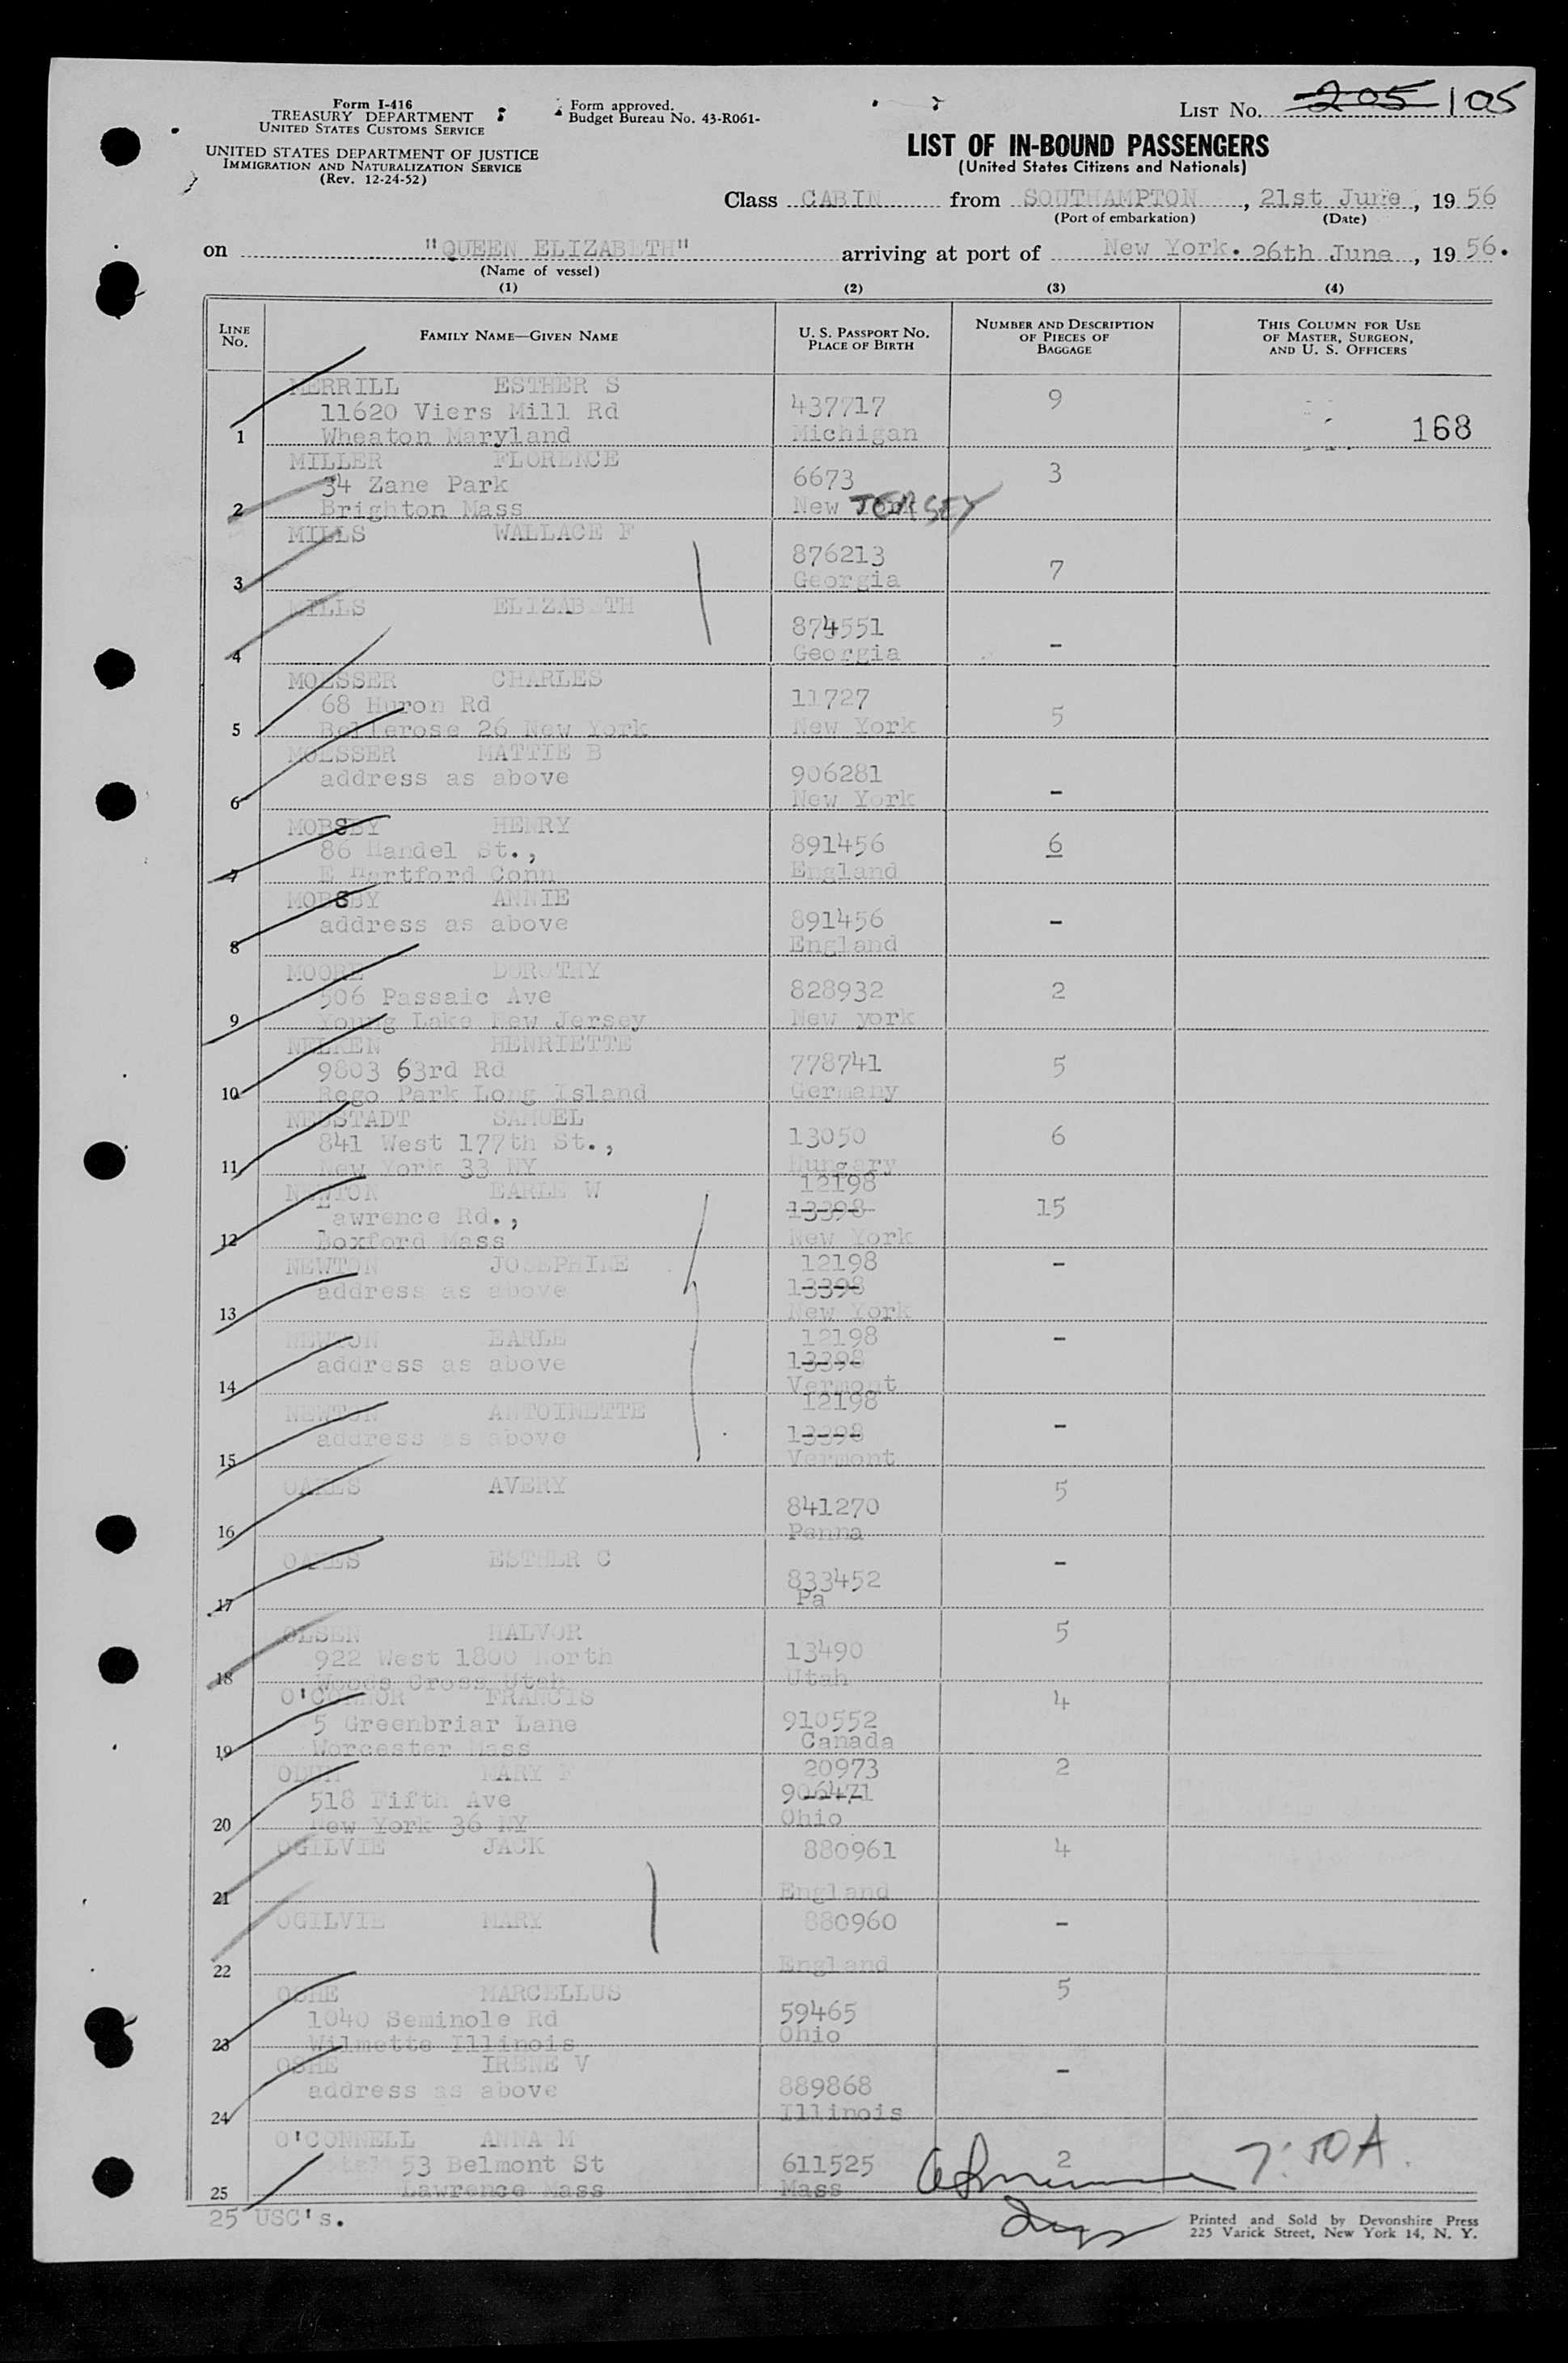 Form I-416
TREASURY DEPARTMENT
UNITED STATES CUSTOMS SERVICE
UNITED STATES DEPARTMENT OF JUSTICE
IMMIGRATION AND NATURALIZATION SERVICE
(Rev. 12-24-52)
Form approved.
Budget Bureau No. 43-R061-
LIST No. 205 105
LIST OF IN-BOUND PASSENGERS
(United States Citizens and Nationals)
Class CABIN from SOUTHAMPTON, 21st June, 19 56
(Port of embarkation) (Date)
on "QUEEN ELIZABETH" arriving at port of New York. 26th June, 19 56.
(Name of vessel)
(1) (2) (3) (4)
LINE No. FAMILY NAME—GIVEN NAME U. S. PASSPORT NO. PLACE OF BIRTH NUMBER AND DESCRIPTION OF PIECES OF BAGGAGE THIS COLUMN FOR USE OF MASTER, SURGEON, AND U. S. OFFICERS
MERRILL ESTHER S
11620 Viers Mill Rd 437717 9
1 Wheaton Maryland Michigan 168
MILLER FLORENCE
34 Zane Park 6673 3
2 Brighton Mass New JERSEY
MILLS WALLACE F
876213 7
3 Georgia
MILLS ELIZABETH
874551
4 Georgia -
MOESSER CHARLES
68 Huron Rd 11727
5 Bellerose 26 New York New York 5
MOESSER MATTIE B
address as above 906281
6 New York -
MOBSBY HENRY
86 Handel St., 891456 6
7 E Hartford Conn England
MOBSBY ANNIE
address as above 891456 -
8 England
MOORE DOROTHY
506 Passaic Ave 828932 2
9 Young Lake New Jersey New york
NELKEN HENRIETTE
9803 63rd Rd 778741 5
10 Rego Park Long Island Germany
NEUSTADT SAMUEL
841 West 177th St., 13050 6
11 New York 33 NY Hungary
NEWTON EARLE W 12198
Lawrence Rd., 13398 15
12 Boxford Mass New York
NEWTON JOSEPHINE 12198 -
address as above 13398
13 New York
NEWTON EARLE 12198 -
address as above 13398
14 Vermont
NEWTON ANTOINETTE 12198
address as above 13398 -
15 Vermont
OAKES AVERY 5
841270
16 Penna
OAKES ESTHER C -
833452
17 Pa
OLSEN HALVOR 5
922 West 1800 North 13490
18 Woods Cross Utah Utah
O'CONNOR FRANCIS 4
5 Greenbriar Lane 910552
19 Worcester Mass Canada
ODUM MARY F 20973 2
518 Fifth Ave 906471
20 New York 36 NY Ohio
OGILVIE JACK 880961 4
21 England
OGILVIE MARY 880960 -
22 England
OSHE MARCELLUS 5
1040 Seminole Rd 59465
23 Wilmette Illinois Ohio
OSHE IRENE V -
address as above 889868
24 Illinois
O'CONNELL ANNA M
53 Belmont St 611525 2 7:50A.
25 Lawrence Mass Mass
25 USC's.
Printed and Sold by Devonshire Press
225 Varick Street, New York 14, N. Y.